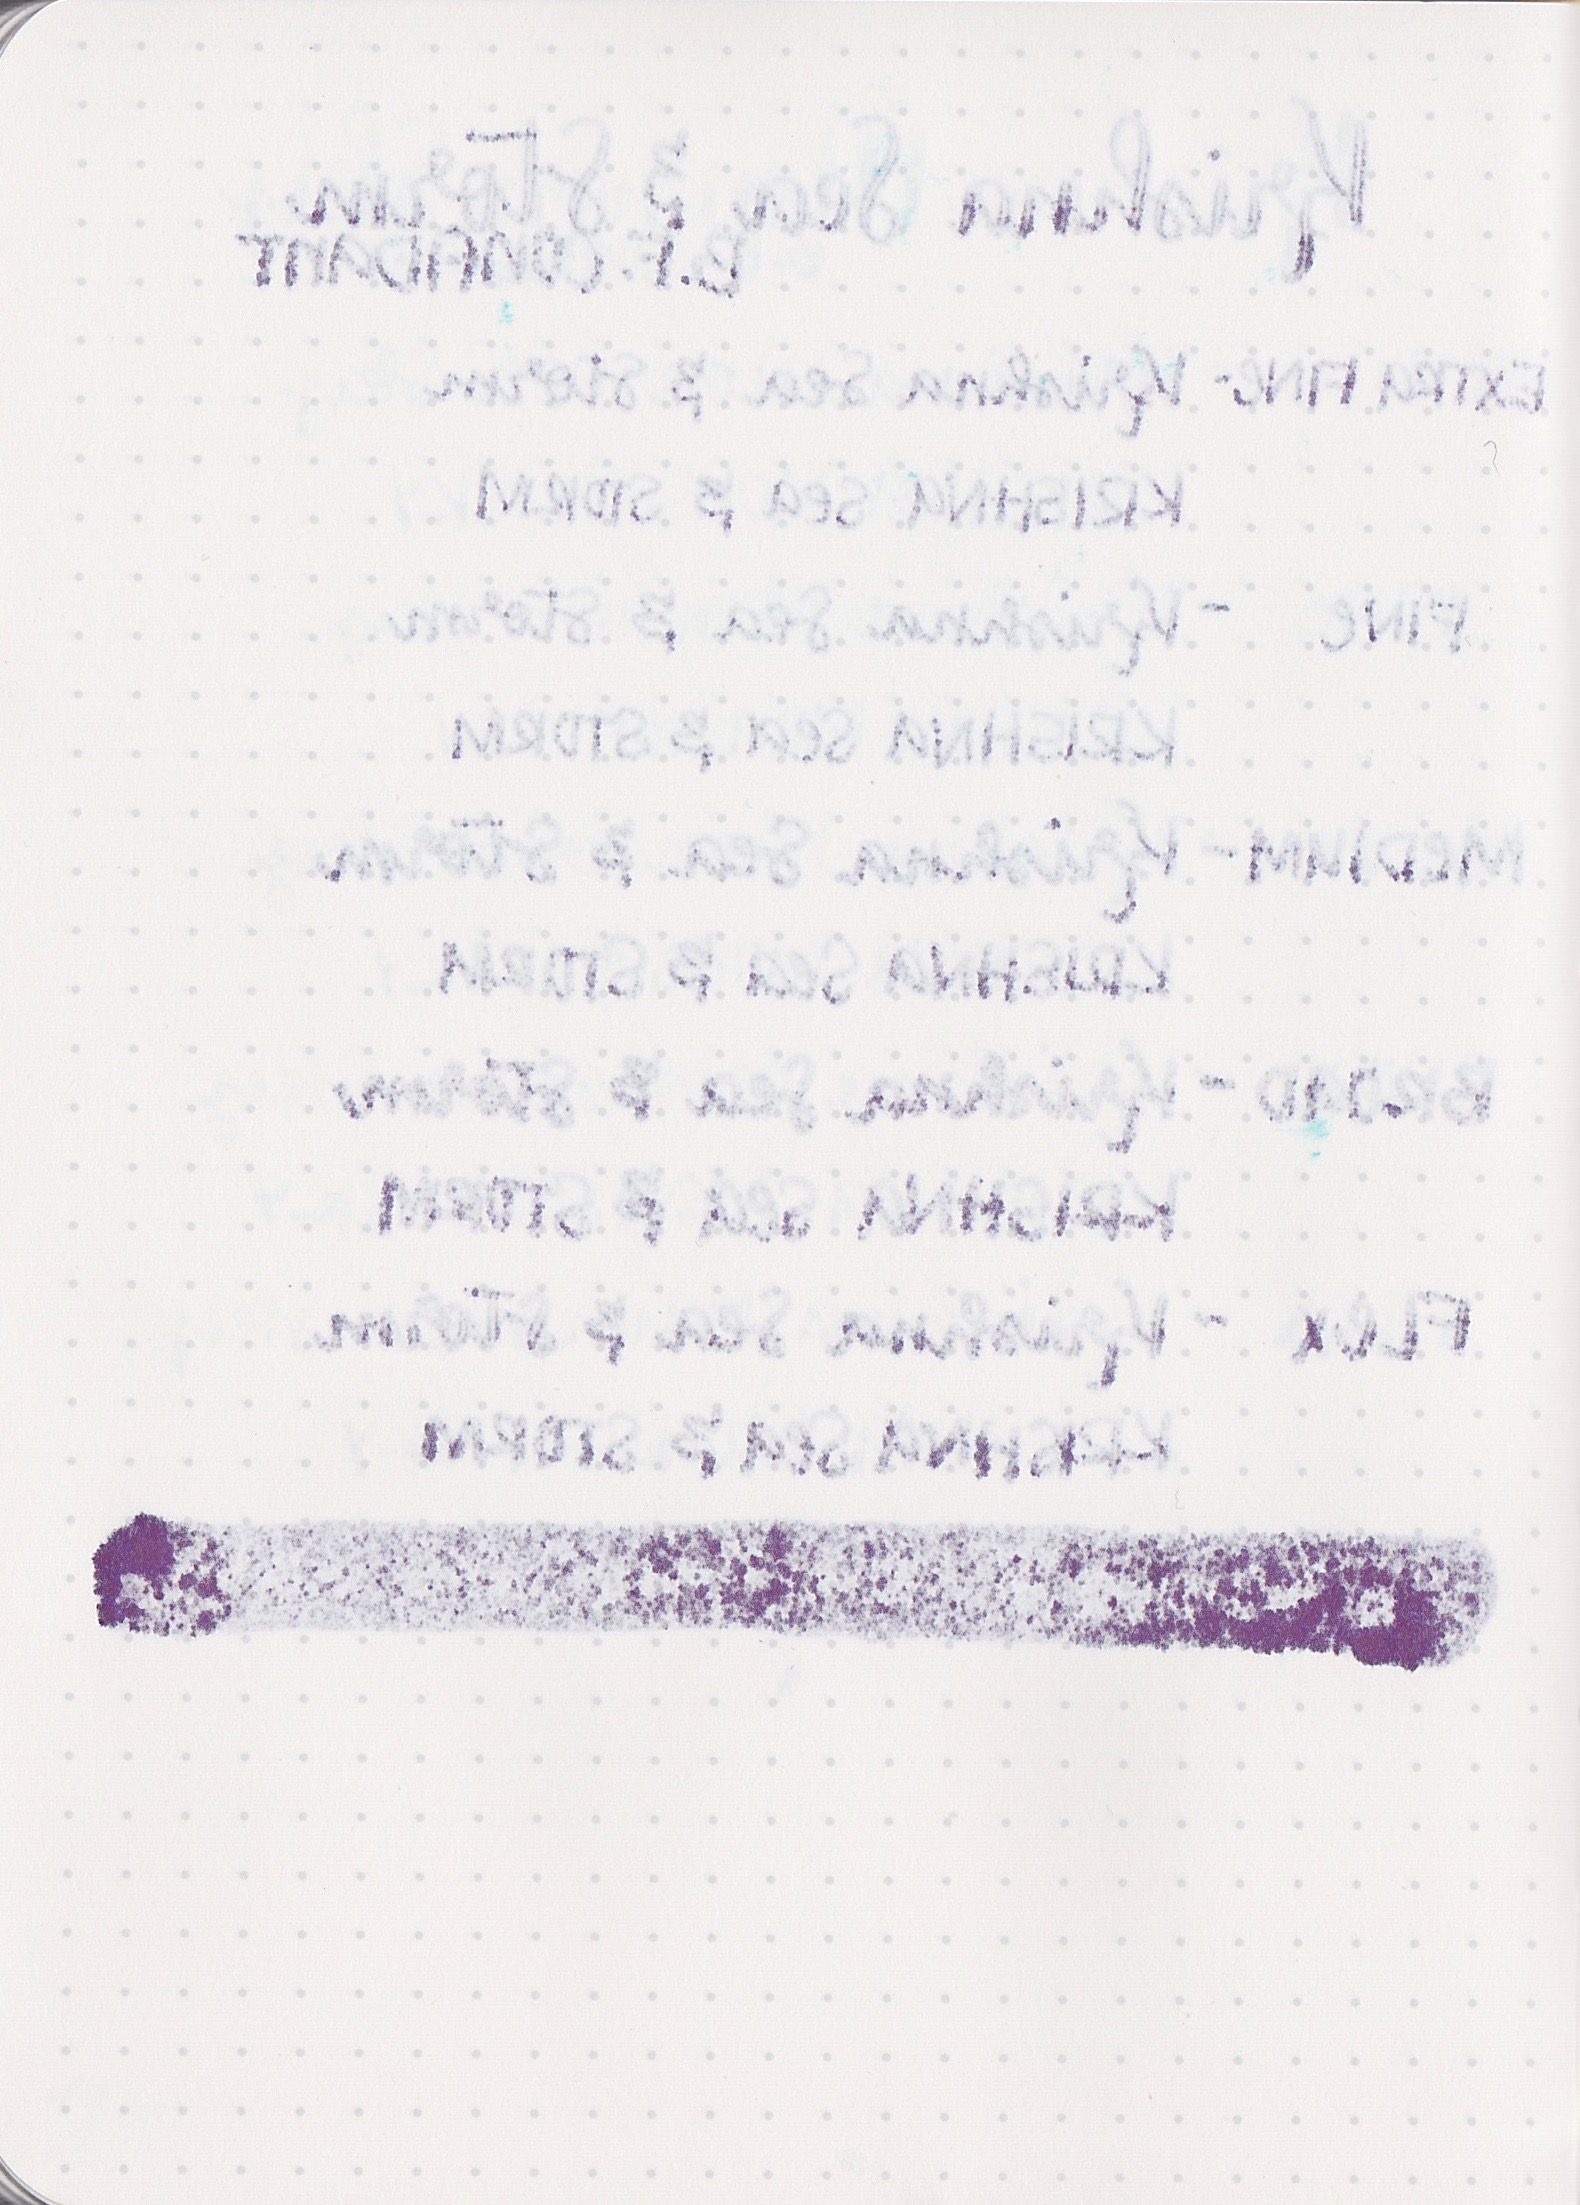 Krishna Sea & Storm
B.F. CONFIDANT
EXTRA FINE - Krishna Sea & Storm
KRISHNA Sea & STORM
FINE - Krishna Sea & Storm
KRISHNA Sea & STORM
MEDIUM - Krishna Sea & Storm
KRISHNA Sea & STORM
BROAD - Krishna Sea & Storm
KRISHNA Sea & STORM
FLEX - Krishna Sea & Storm
KRISHNA Sea & STORM